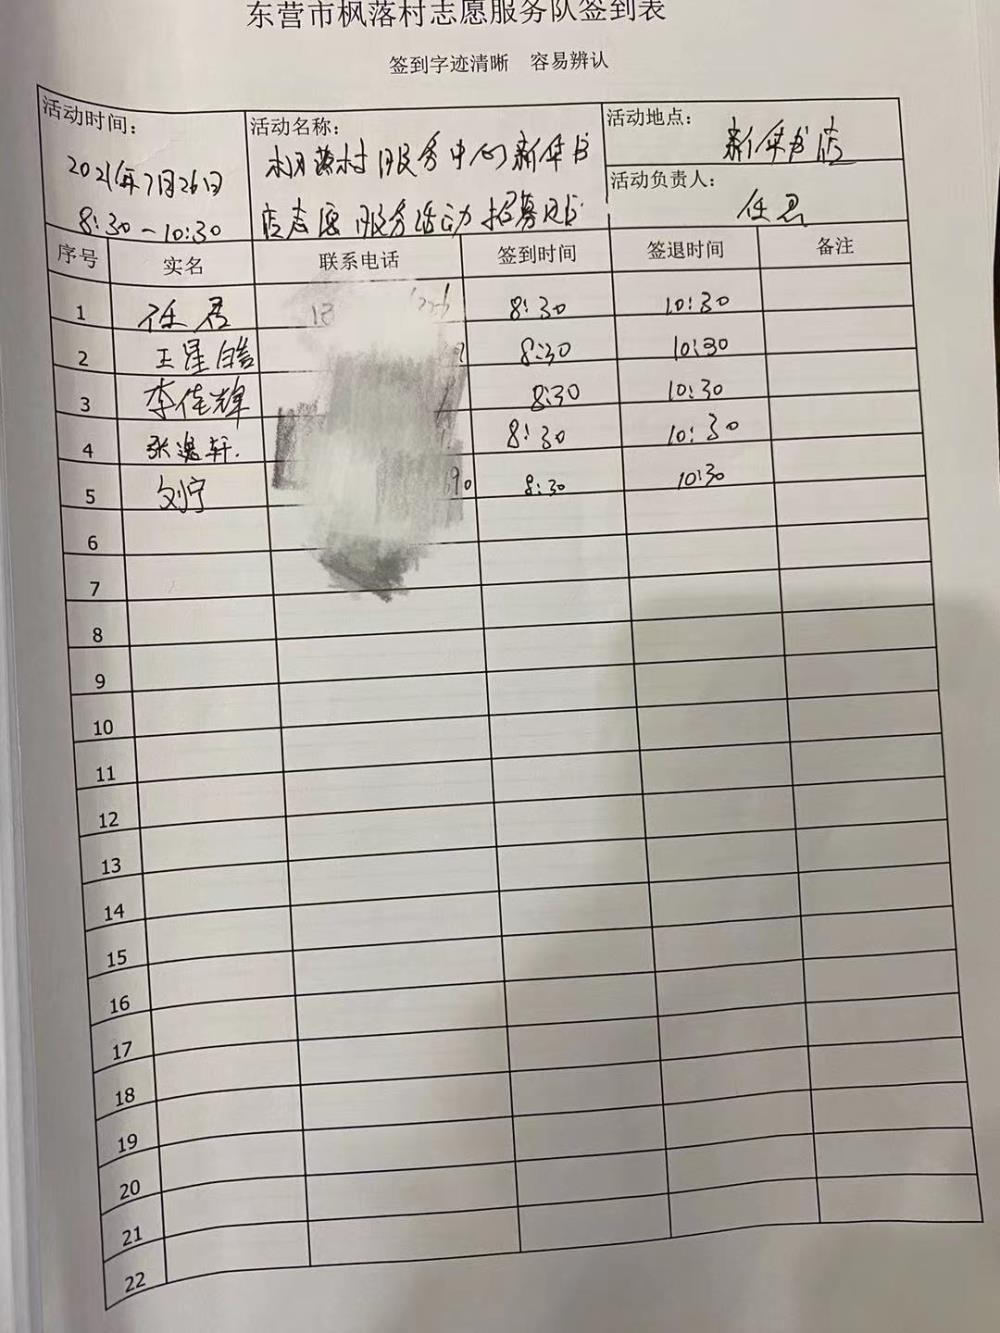 东营市枫落村志愿服务队签到表
签到字迹清晰 容易辨认
活动时间：
2021年7月26日
8:30-10:30
活动名称：
枫落村服务中心新华书
店志愿服务活动招募
活动地点：
新华书店
活动负责人：
任
序号 实名 联系电话 签到时间 签退时间 备注
1 任君 8:30 10:30
2 王星皓 8:30 10:30
3 李佳辉 8:30 10:30
4 张逸轩. 8:30 10:30
5 刘宁 8:30 10:30
6
7
8
9
10
11
12
13
14
15
16
17
18
19
20
21
22